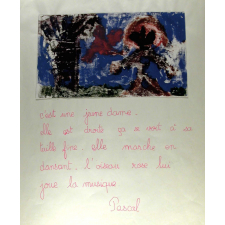 c'est une jeune dame.
elle est droite ça se voit à sa
taille fine. elle marche en
dansant, l'oiseau rose lui
joue la musique
Pascal